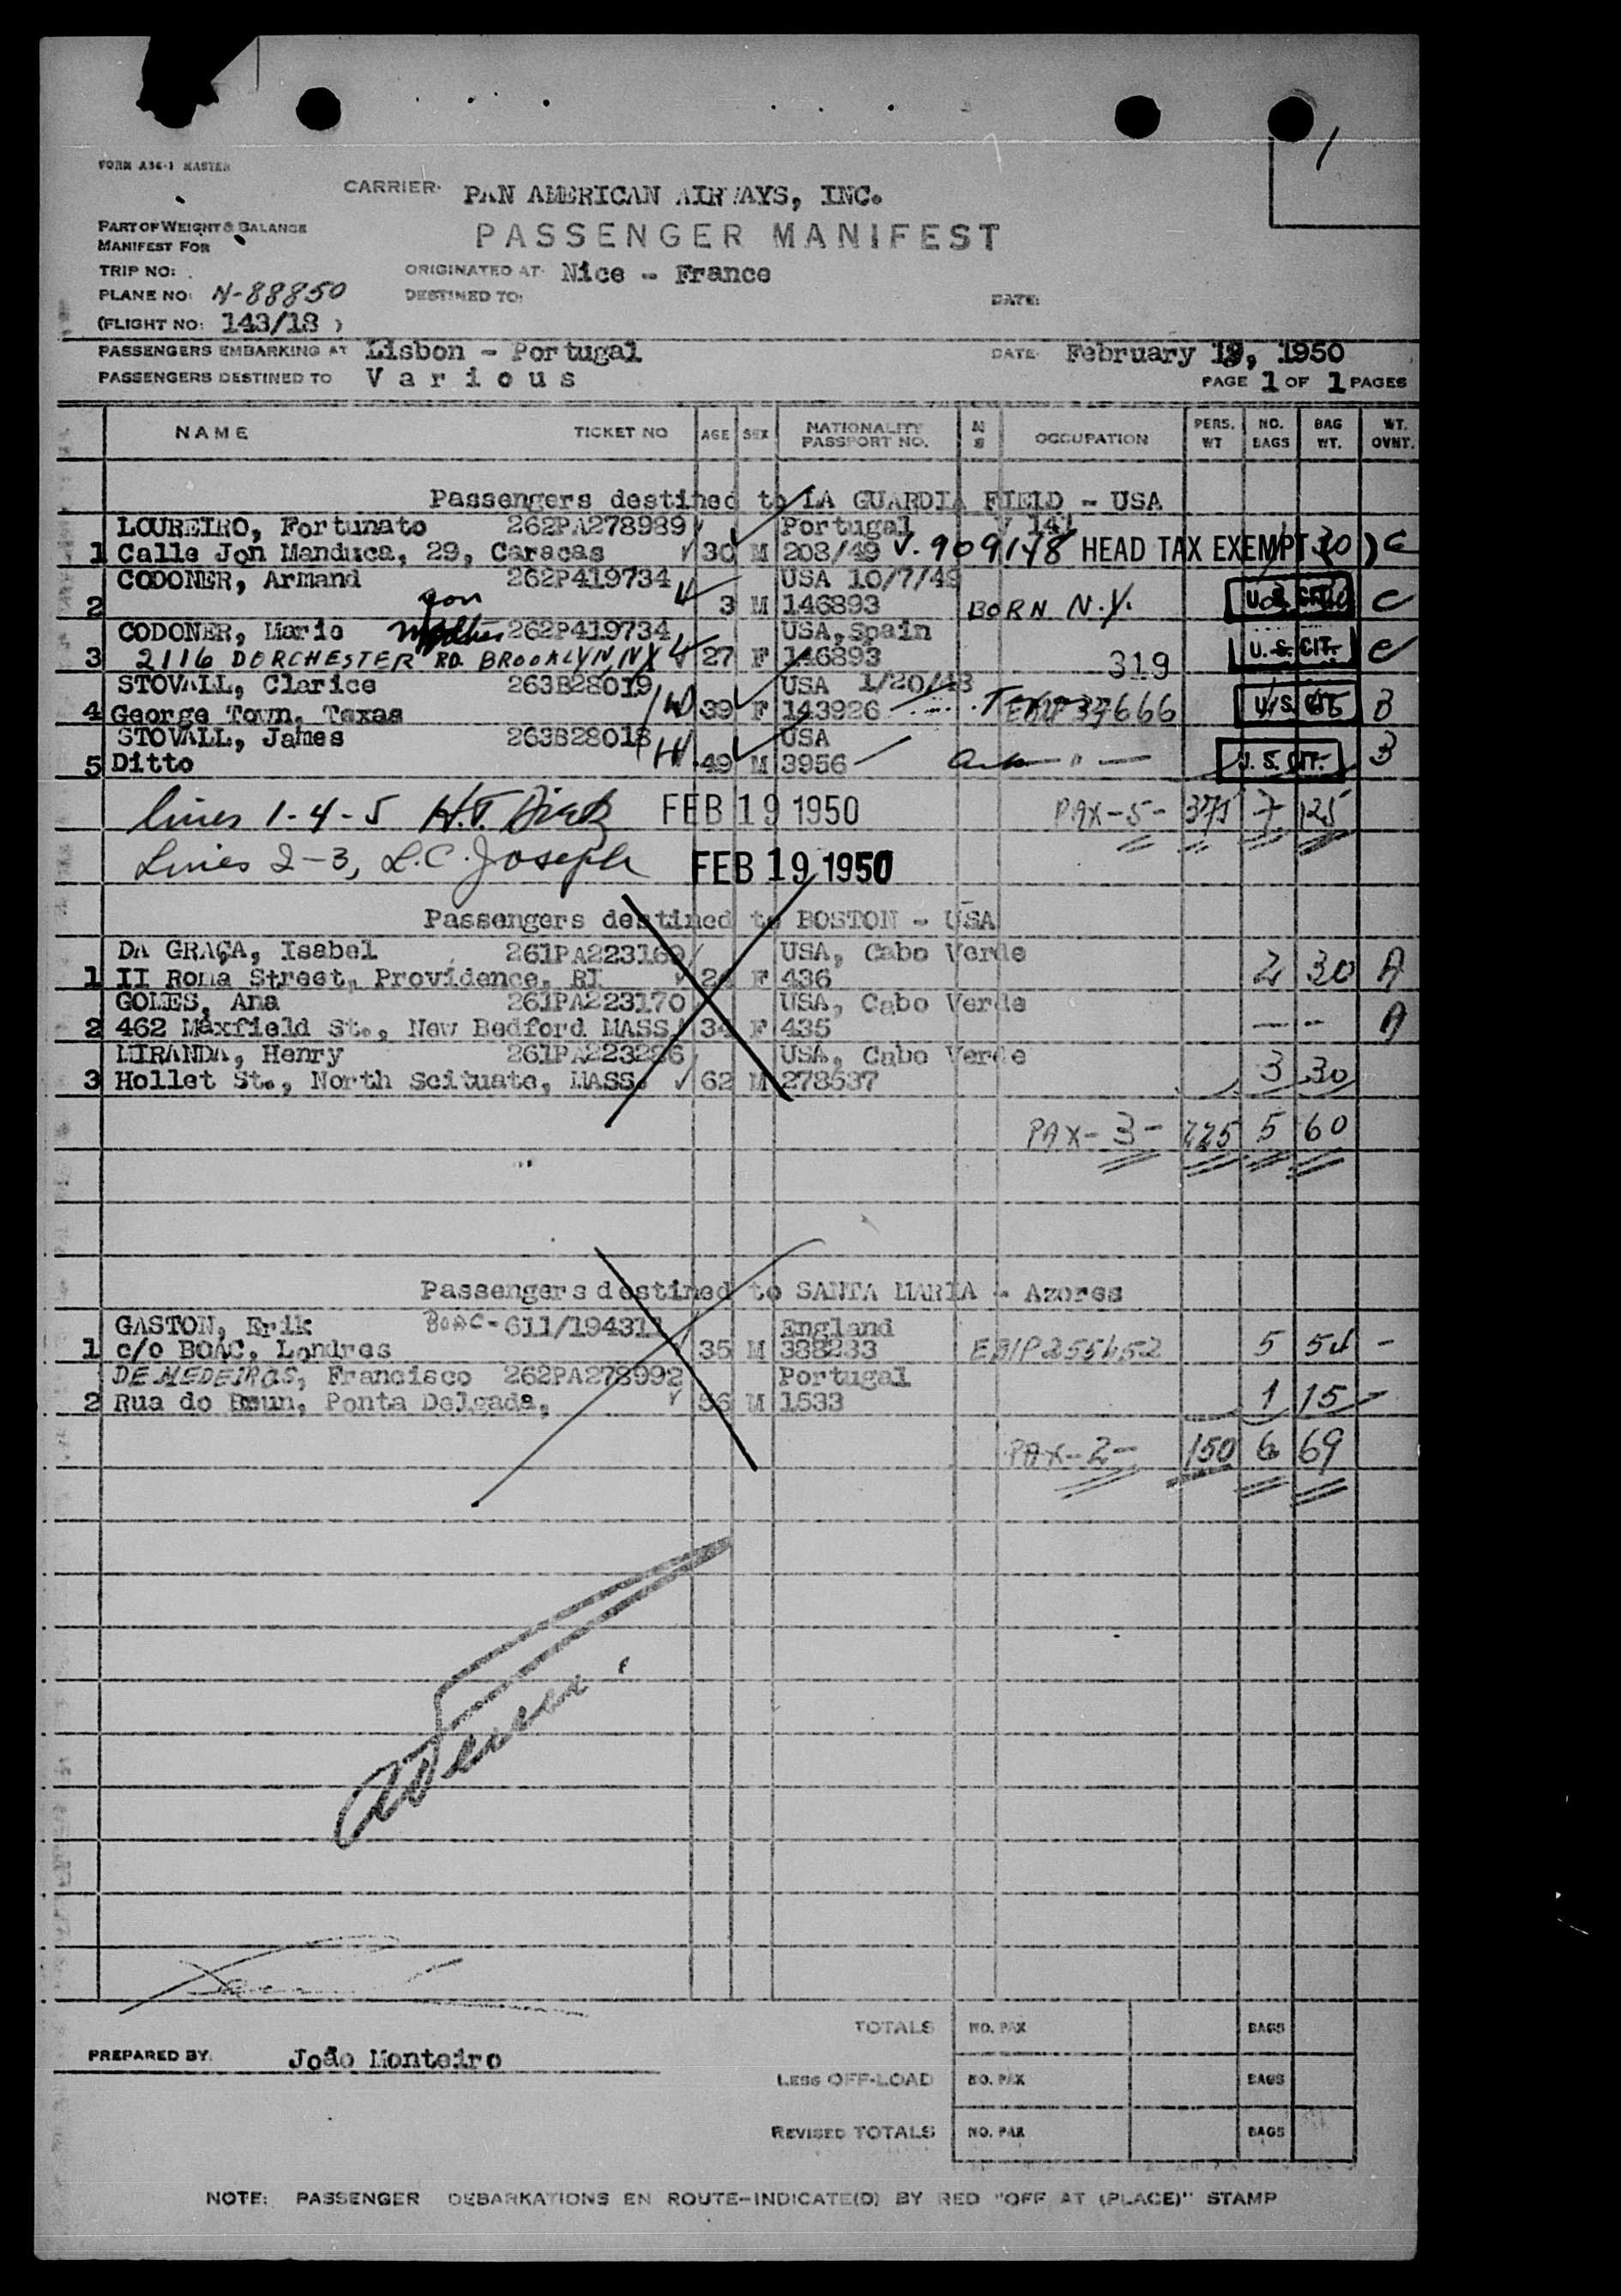 FORM A36-1 MASTER
CARRIER: PAN AMERICAN AIRWAYS, INC.
PART OF WEIGHT & BALANCE
PASSENGER MANIFEST
MANIFEST FOR
TRIP NO:
ORIGINATED AT: Nice - France
PLANE NO: N-88850
DESTINED TO:
DATE:
(FLIGHT NO: 143/18 )
PASSENGERS EMBARKING AT Lisbon - Portugal
DATE: February 1, 1950
PASSENGERS DESTINED TO Various
PAGE 1 OF 1 PAGES
NAME TICKET NO AGE SEX NATIONALITY PASSPORT NO. OCCUPATION PERS. WT NO. BAGS BAG WT. WT. OVNT.
Passengers destined to LA GUARDIA FIELD - USA
LOUREIRO, Fortunato 262PA278989 Portugal
1 Calle Jon Manduca, 29, Caracas 30 M 208/49 V. 909148 HEAD TAX EXEMPT C
CODONER, Armand 262P419734 USA 10/7/49
2 son 3 M 146893 BORN N.Y. U.S. CIT. C
CODONER, Marie mother 262P419734 USA, Spain
3 2116 DORCHESTER RD. BROOKLYN, NY 27 F 146893 319 U.S. CIT. C
STOVALL, Clarice 263B28019 USA 1/20/48
4 George Town, Texas 39 F 143926 37666 U.S. CIT. B
STOVALL, James 263B28018 USA
5 Ditto 49 M 3956 U.S. CIT. B
lines 1-4-5 H.T. FEB 19 1950 PAX-5- 375 7 125
Lines 2-3, L.C. Joseph FEB 19 1950
Passengers destined to BOSTON - USA
DA GRAÇA, Isabel 261PA223169 USA, Cabo Verde
1 II Roma Street, Providence, RI F 436 2 30 A
GOMES, Ana 261PA223170 USA, Cabo Verde
2 462 Maxfield St., New Bedford MASS 34 F 435 — -- A
MIRANDA, Henry 261PA223286 USA, Cabo Verde
3 Hollet St., North Scituate, MASS. 62 M 278637 3 30
PAX-3- 225 5 60
Passengers destined to SANTA MARIA - Azores
GASTON, Erik BOAC-611/194311 England
1 c/o BOAC, Londres 35 M 388233 5 54 -
DE MEDEIROS, Francisco 262PA278992 Portugal
2 Rua do Brum, Ponta Delgada, 56 M 1533 1 15 -
PAX-2- 150 6 69
TOTALS NO. PAX BAGS
PREPARED BY. João Monteiro
LESS OFF-LOAD NO. PAX BAGS
REVISED TOTALS NO. PAX BAGS
NOTE: PASSENGER DEBARKATIONS EN ROUTE-INDICATE(D) BY RED "OFF AT (PLACE)" STAMP